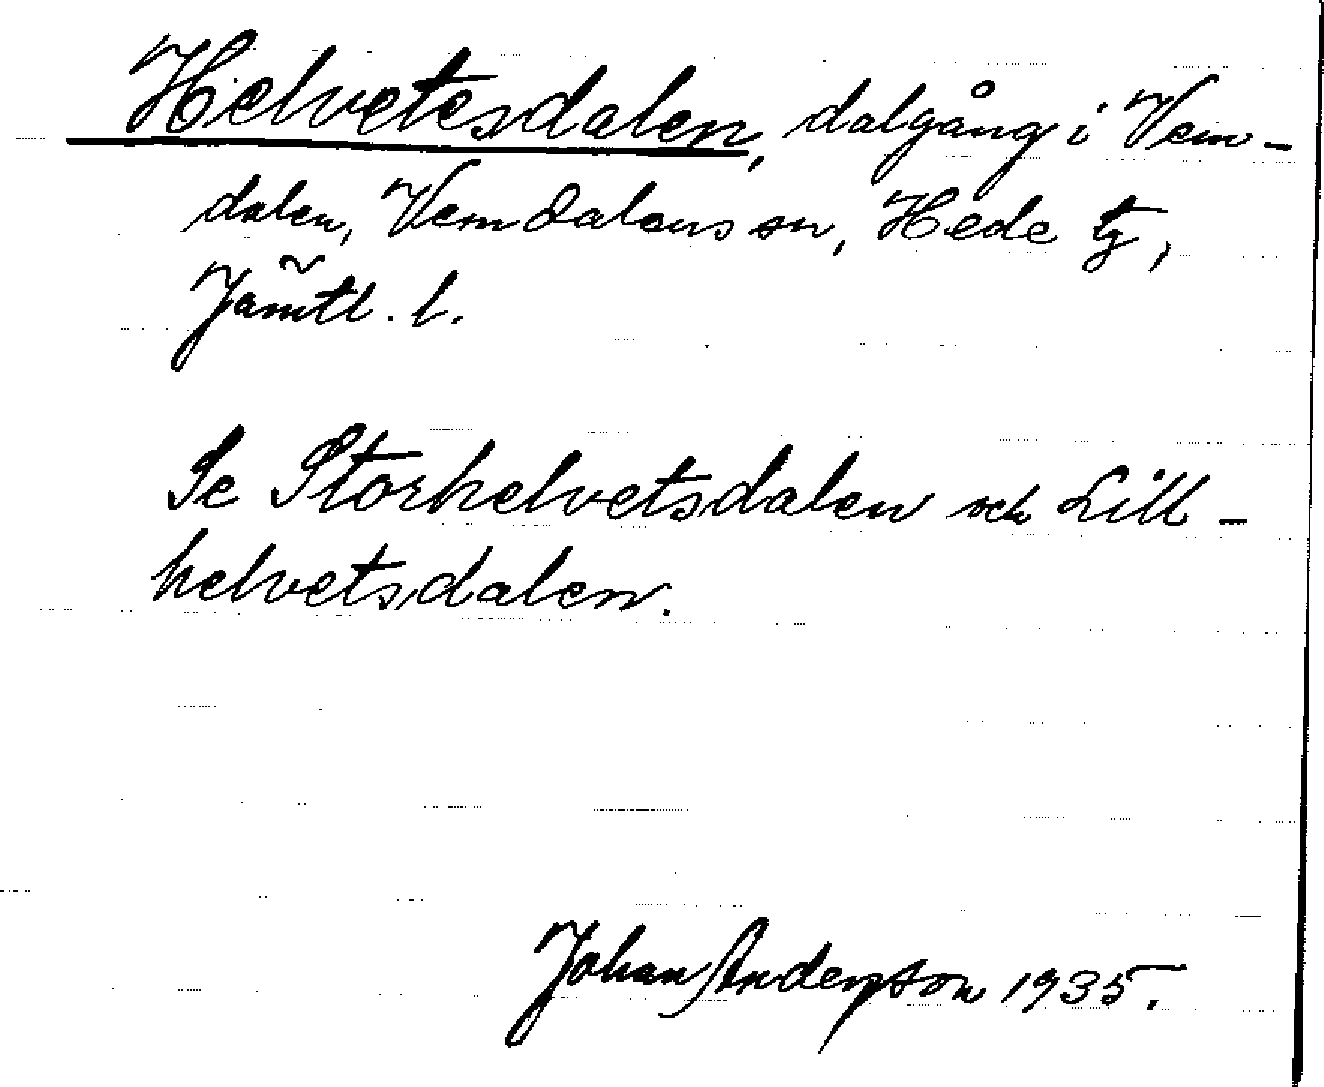 Helvetesdalen, dalgång i Vem-
dalen, Vemdalens sn, Hede tg,
Jämtl. l.
Se Storhelvetsdalen och Lill-
helvetsdalen.
Johan Anderson 1935.